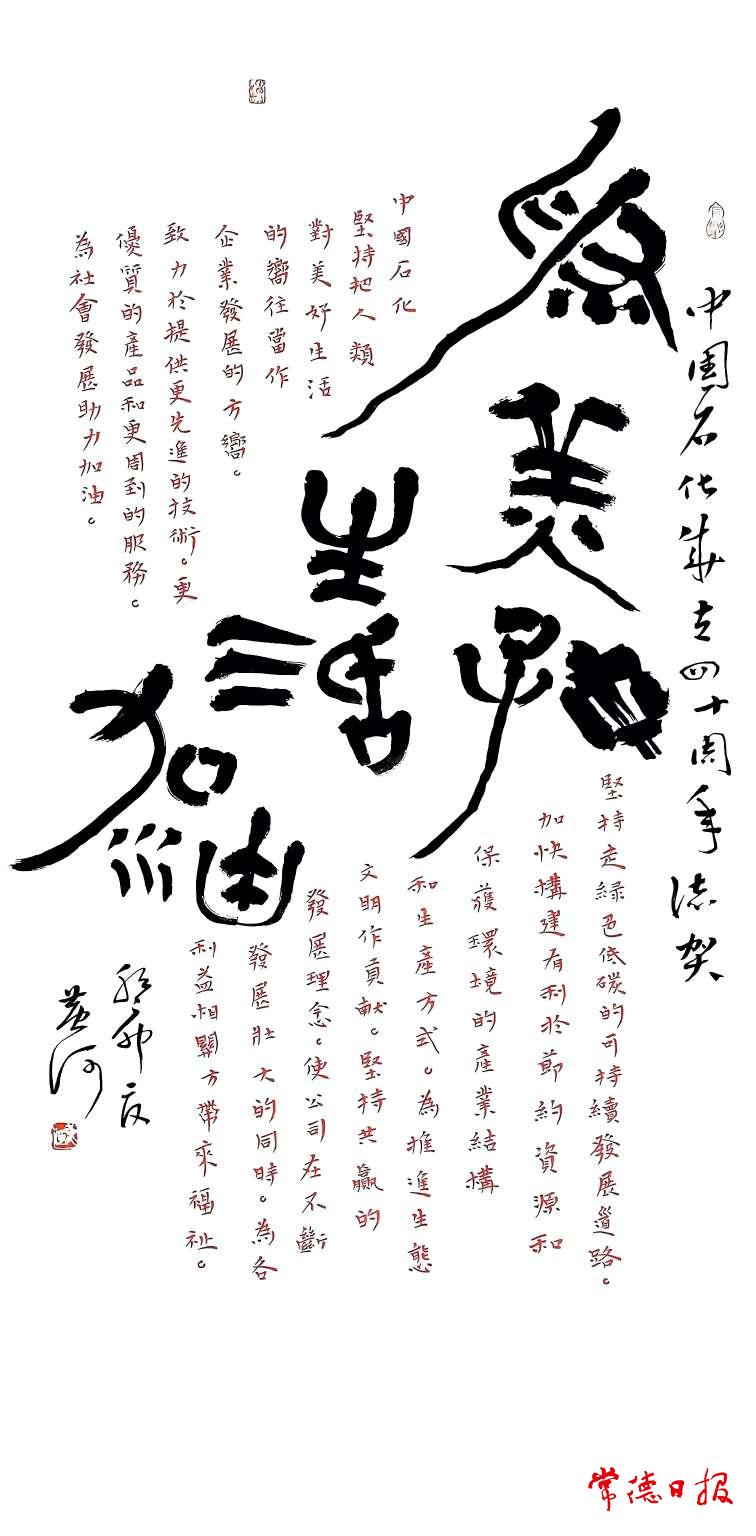 中国石化成立四十周年誌贺
為美好生活加油
中國石化
堅持把人類
對美好生活
的嚮往當作
企業發展的方嚮。
致力於提供更先進的技術。更
優質的產品和更周到的服務。
為社會發展助力加油。
堅持走綠色低碳的可持續發展道路。
加快構建有利於節約資源和
保護環境的產業結構
和生產方式。為推進生態
文明作貢献。堅持共贏的
發展理念。使公司在不斷
發展壯大的同時。為各
利益相關方帶來福祉。
癸卯夏
黄河
常德日报